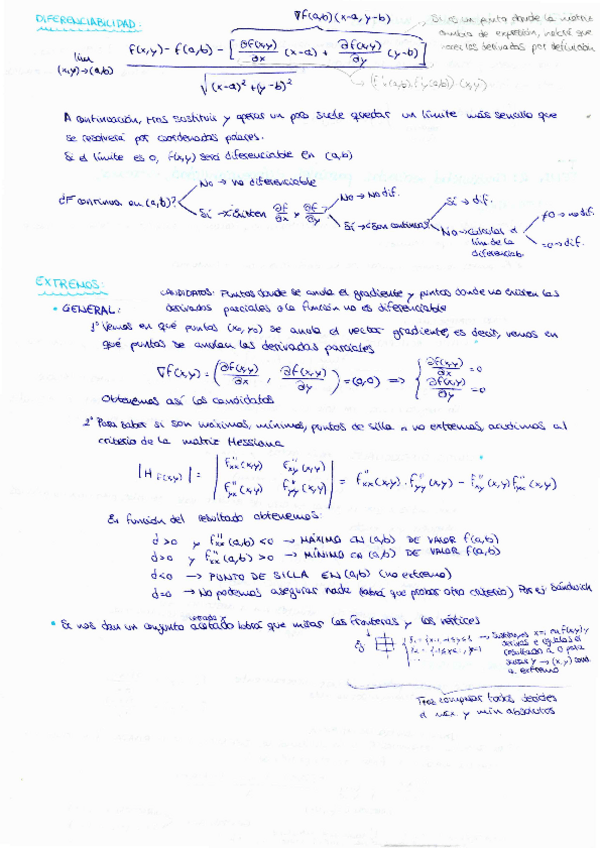 DIFERENCIABILIDAD:
∇f(a,b)(x-a, y-b)
Si es un punto donde la matriz
cambia de expresión, habrá que
hacer las derivadas por definición
lim (x,y)→(a,b) f(x,y) - f(a,b) - [∂f(x,y)/∂x (x-a) + ∂f(x,y)/∂y (y-b)] / √((x-a)² + (y-b)²)
A continuación, tras sustituir y operar un poco suele quedar un límite más sencillo que
se resolverá por coordenadas polares.
Si el límite es 0, f(x,y) será diferenciable en (a,b)
¿f continua en (a,b)?
No → no diferenciable
Sí → ¿existen ∂f/∂x y ∂f/∂y?
No → No dif.
Sí → ¿Son continuas?
Sí → dif.
No → calcular el
lím de la
diferenciab.
≠0 → no dif.
=0 → dif.
EXTREMOS:
CANDIDATOS: Puntos donde se anula el gradiente y puntos donde no existen las
derivadas parciales o la función no es diferenciable
• GENERAL:
1º Vemos en qué puntos (x₀,y₀) se anula el vector gradiente, es decir, vemos en
qué puntos se anulan las derivadas parciales
∇f(x,y) = (∂f(x,y)/∂x, ∂f(x,y)/∂y) = (0,0) ⟹ { ∂f(x,y)/∂x = 0
∂f(x,y)/∂y = 0
Obtenemos así los candidatos
2º Para saber si son máximos, mínimos, puntos de silla o no extremos, acudimos al
criterio de la matriz Hessiana
|H f(x,y)| = | f''xx(x,y) f''xy(x,y) |
| f''yx(x,y) f''yy(x,y) | = f''xx(x,y)·f''yy(x,y) - f''xy(x,y) f''yx(x,y)
En función del resultado obtenemos:
d>0 y f''xx(a,b) <0 → MÁXIMO EN (a,b) DE VALOR f(a,b)
d>0 y f''xx(a,b) >0 → MÍNIMO EN (a,b) DE VALOR f(a,b)
d<0 → PUNTO DE SILLA EN (a,b) (no extremo)
d=0 → No podemos asegurar nada (habrá que probar otro criterio) Por ej. Sandwich
cerrado y
• Si nos dan un conjunto acotado habrá que mirar las fronteras y los vértices
Ej
en f(x,y) y
derivas e igualas el
resultado a 0 para
→ (x,y) cand.
a extremo
Tras comparar todos decides
el máx y mín absolutos